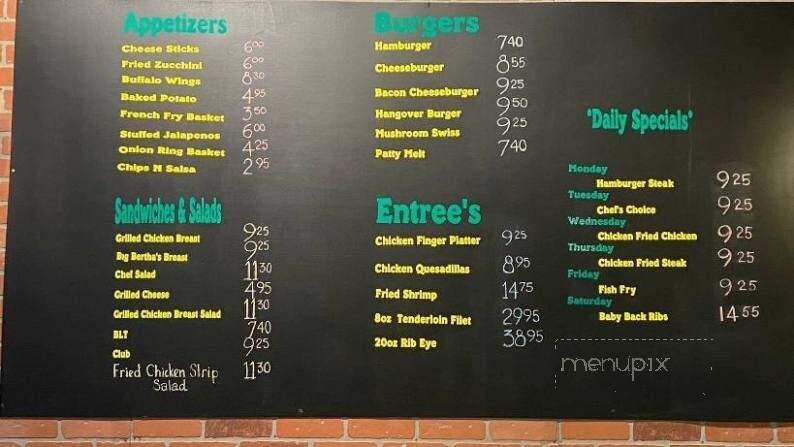 Appetizers
Cheese Sticks 6.00
Fried Zucchini 6.00
Buffalo Wings 8.30
Baked Potato 4.95
French Fry Basket 3.50
Stuffed Jalapenos 6.00
Onion Ring Basket 4.25
Chips N Salsa 2.95
Sandwiches & Salads
Grilled Chicken Breast 9.25
Big Bertha's Breast 9.25
Chef Salad 11.30
Grilled Cheese 4.95
Grilled Chicken Breast Salad 11.30
BLT 7.40
Club 9.25
Fried Chicken Strip 11.30
Salad
Burgers
Hamburger 7.40
Cheeseburger 8.55
Bacon Cheeseburger 9.25
Hangover Burger 9.50
Mushroom Swiss 9.25
Patty Melt 7.40
Entree's
Chicken Finger Platter 9.25
Chicken Quesadillas 8.95
Fried Shrimp 14.75
8oz Tenderloin Filet 29.95
20oz Rib Eye 38.95
'Daily Specials'
Monday
Hamburger Steak 9.25
Tuesday
Chef's Choice 9.25
Wednesday
Chicken Fried Chicken 9.25
Thursday
Chicken Fried Steak 9.25
Friday
Fish Fry 9.25
Saturday
Baby Back Ribs 14.55
menupix